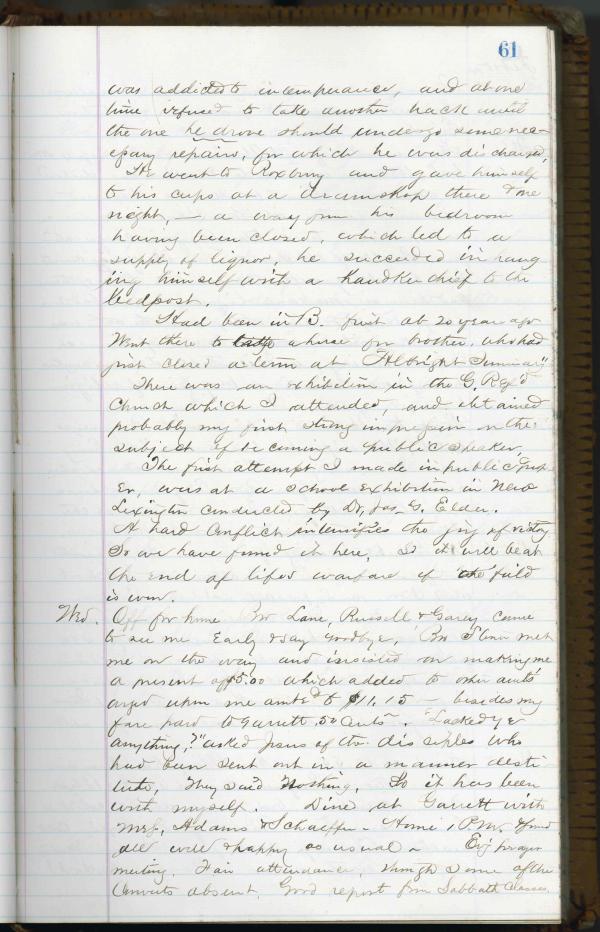 61
was addicted to intemperance, and at one
time refused to take another hack until
the one he drove should undergo some nec-
essary repairs, for which he was discharged.
He went to Roxbury and gave himself
to his cups at a dramshop there & one
night, — a way from his bedroom
having been closed, which led to a
supply of liquor, he succeeded in hang
ing himself with a handkerchief to the
bedpost.
Had been in B. first abt 20 years ago
Went there to a horse for brother, who had
just closed a term at Albright Seminary
There was an exhibition in the G. Ref'd
Church which I attended, and obtained
probably my first strong impression on the
subject of becoming a public speaker.
The first attempt I made in public
was at a school exhibition in New
Lexington conducted by Dr. Jas. G. Elder.
A hard conflict intensifies the joy of victory
So we have found it here, so it will be at
the end of life's warfare if the field
is won.
Wed. Off for home Bro Lane, Russell & Garey came
to see me early & say goodbye, Bro met
me on the way and insisted on making me
a present of $5.00 which added to other amts
urged upon me amtd to $11.15 — besides my
fare paid to Garrett .50 cents. "Lacked ye
anything?" asked Jesus of the disciples who
had been sent out in a manner desti
tute, They said Nothing. So it has been
with myself. Dine at Garrett with
Mrs. Adams & Schaeffer - Home, P.M. & found
all well & happy as usual - Evg prayer
meeting. Fair attendance, though some of the
Converts absent, Good report from Sabbath Classes.